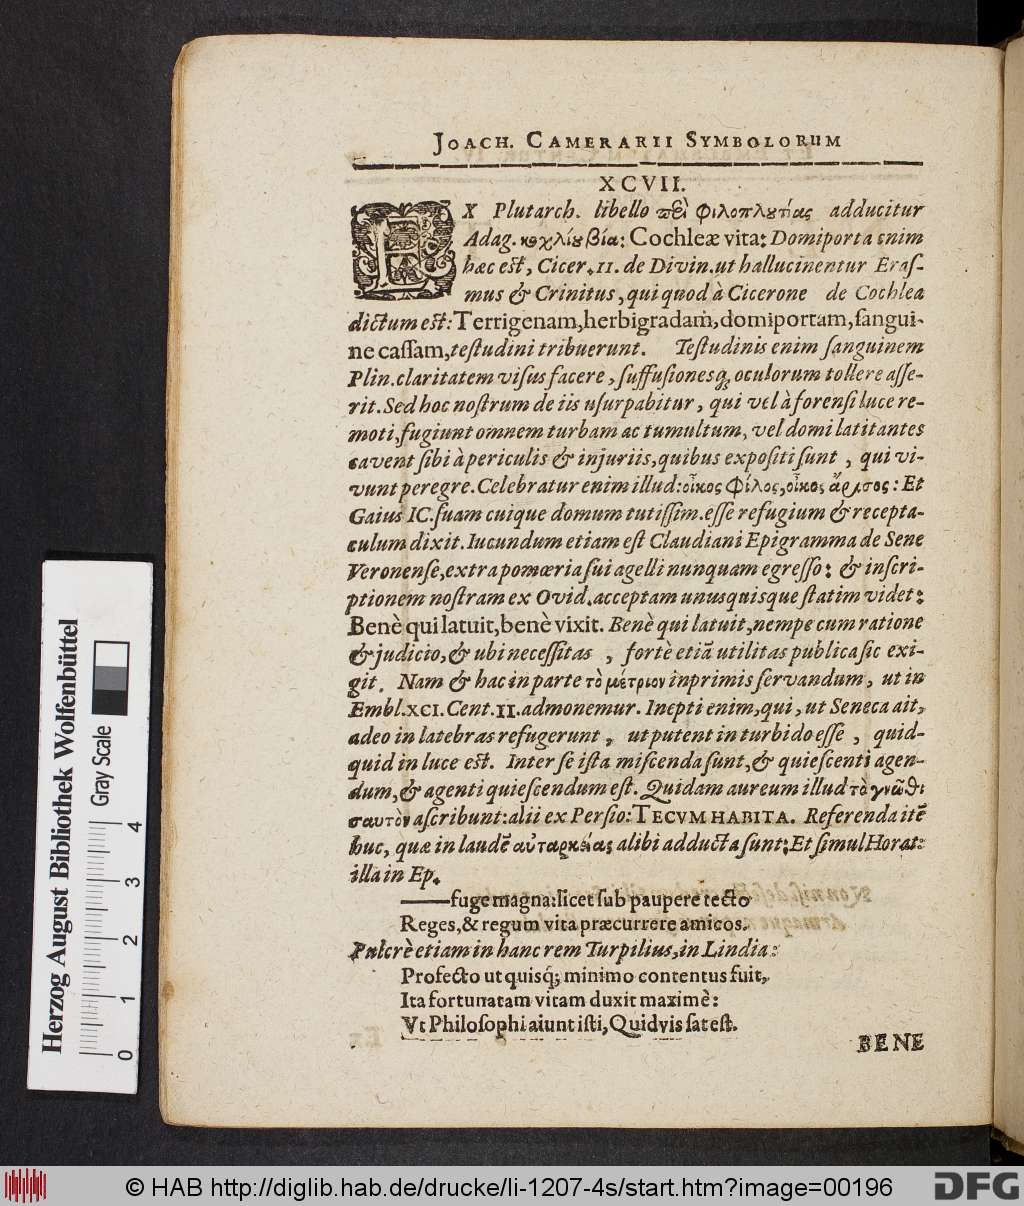 JOACH. CAMERARII SYMBOLORUM
XCVII.
EX Plutarch. libello περὶ φιλοπλουτίας adducitur
Adag. κοχλίου βία: Cochleæ vita: Domiporta enim
hæc est, Cicer. II. de Divin. ut hallucinentur Eras-
mus & Crinitus, qui quod à Cicerone de Cochlea
dictum est: Terrigenam, herbigradam, domiportam, sangui-
ne cassam, testudini tribuerunt. Testudinis enim sanguinem
Plin. claritatem visus facere, suffusionesq; oculorum tollere asse-
rit. Sed hoc nostrum de iis usurpabitur, qui vel à forensi luce re-
moti, fugiunt omnem turbam ac tumultum, vel domi latitantes
cavent sibi à periculis & injuriis, quibus expositi sunt, qui vi-
vunt peregre. Celebratur enim illud: οἶκος φίλος, οἶκος ἄριστος: Et
Gaius IC. suam cuique domum tutissim. esse refugium & recepta-
culum dixit. Iucundum etiam est Claudiani Epigramma de Sene
Veronense, extra pomœria sui agelli nunquam egresso: & inscri-
ptionem nostram ex Ovid. acceptam unusquisque statim videt:
Benè qui latuit, benè vixit. Benè qui latuit, nempe cum ratione
& judicio, & ubi necessitas, fortè etiã utilitas publica sic exi-
git. Nam & hac in parte τὸ μέτριον inprimis servandum, ut in
Embl. XCI. Cent. II. admonemur. Inepti enim, qui, ut Seneca ait,
adeo in latebras refugerunt, ut putent in turbido esse, quid-
quid in luce est. Inter se ista miscenda sunt, & quiescenti agen-
dum, & agenti quiescendum est. Quidam aureum illud τὸ γνῶθι
σαυτὸν ascribunt: alii ex Persio: TECVM HABITA. Referenda itẽ
huc, quæ in laudẽ αὐταρκείας alibi adducta sunt: Et simul Horat:
illa in Ep.
—— fuge magna: licet sub paupere tecto
Reges, & regum vita præcurrere amicos.
Pulcrè etiam in hanc rem Turpilius, in Lindia:
Profecto ut quisq; minimo contentus fuit,
Ita fortunatam vitam duxit maximè:
Vt Philosophi aiunt isti, Quidvis sat est.
BENE
Herzog August Bibliothek Wolfenbüttel
Gray Scale
0 1 2 3 4
© HAB http://diglib.hab.de/drucke/li-1207-4s/start.htm?image=00196
DFG